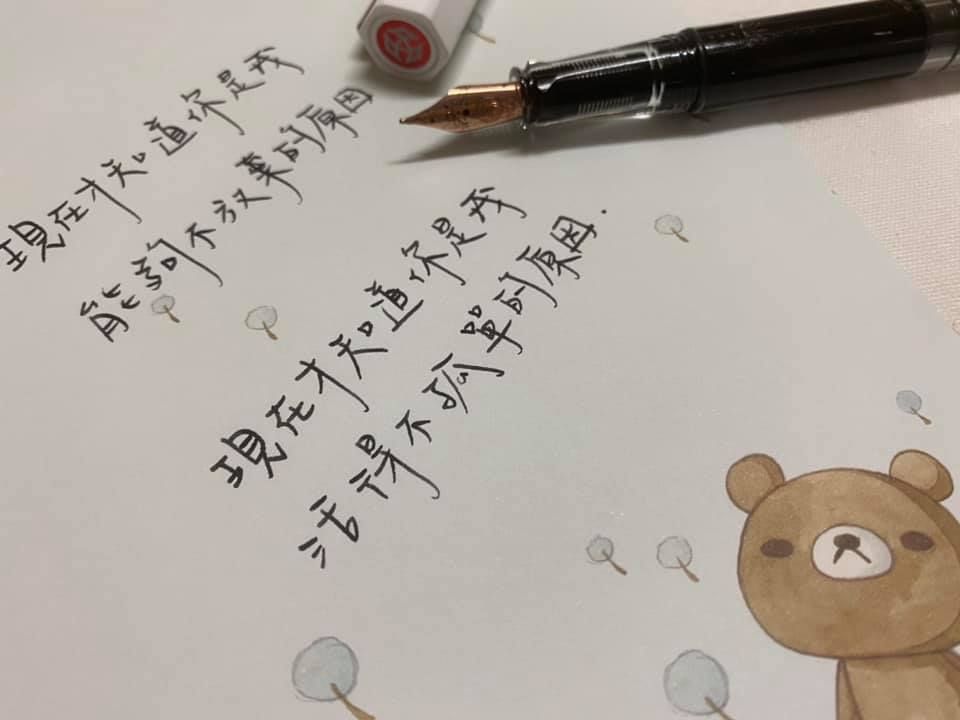 現在才知道你是我
能夠不放棄的原因
現在才知道你是我
活得不孤單的原因.